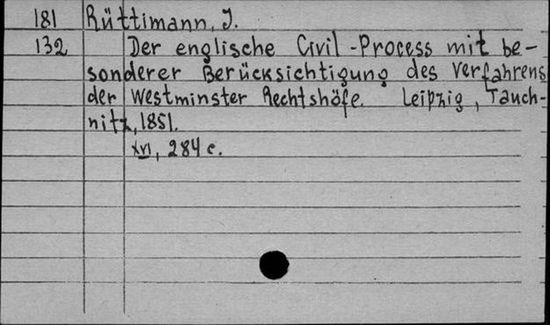 181 Rüttimann, J.
132 Der englische Civil-Process mit be-
sonderer Berücksichtigung des Verfahrens
der Westminster Rechtshöfe. Leipzig, Tauch-
nitz, 1851.
XVI, 284 c.